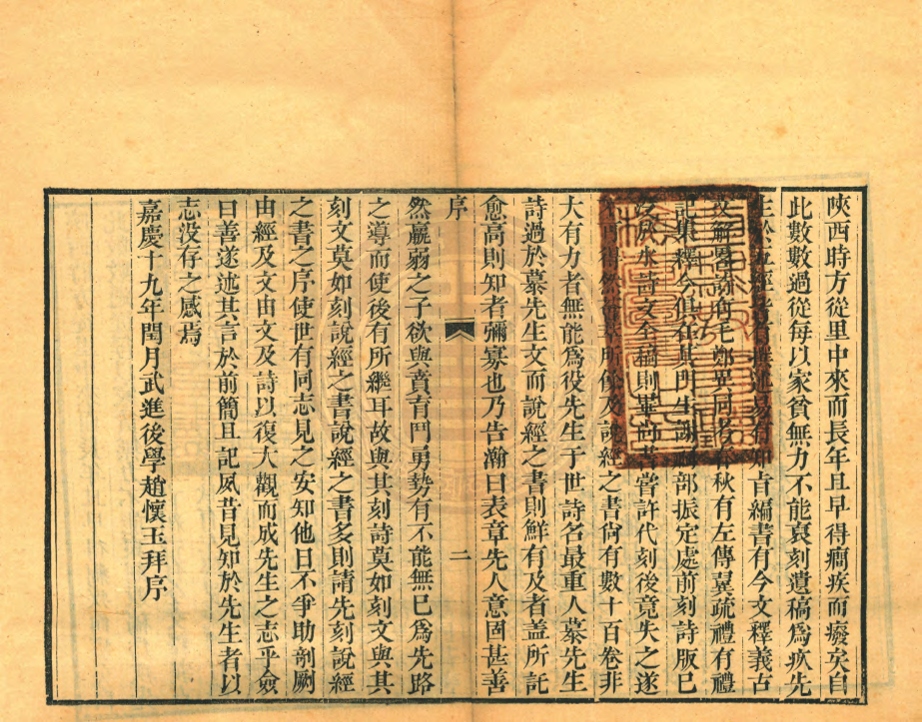 陝西時方從里中來而長年且早得癎疾而癈矣自
此數數過從每以家貧無力不能裒刻遺稿爲疚先
生於五經皆有撰述易有知旨編書有今文釋義古
文解署詩有毛鄭異同考春秋有左傳異疏禮有禮
記集釋今俱在其門生謝部振定處前刻詩版已
没於水詩文全稿則畢尚書嘗許代刻後竟失之遂
所及說經之書尙有數十百卷非
大有力者無能爲役先生于世詩名最重人慕先生
詩過於慕先生文而說經之書則鮮有及者蓋所託
愈高則知者彌寡也乃告瀚曰表章先人意固甚善
序
二
然羸弱之子欲與賁育鬥勇勢有不能無已爲先路
之導而使後有所繼耳故與其刻詩莫如刻文與其
刻文莫如刻說經之書說經之書多則請先刻說經
之書之序使世有同志見之安知他日不爭助剞劂
由經及文由文及詩以復大觀而成先生之志乎僉
曰善遂述其言於前簡且記夙昔見知於先生者以
志没存之感焉
嘉慶十九年閏月武進後學趙懷玉拜序